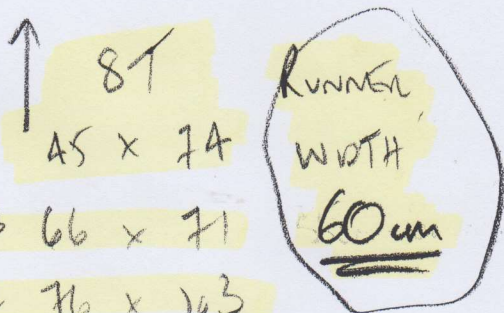 8T
45 x 74
66 x 71
76 x
RUNNER
WIDTH
60cm